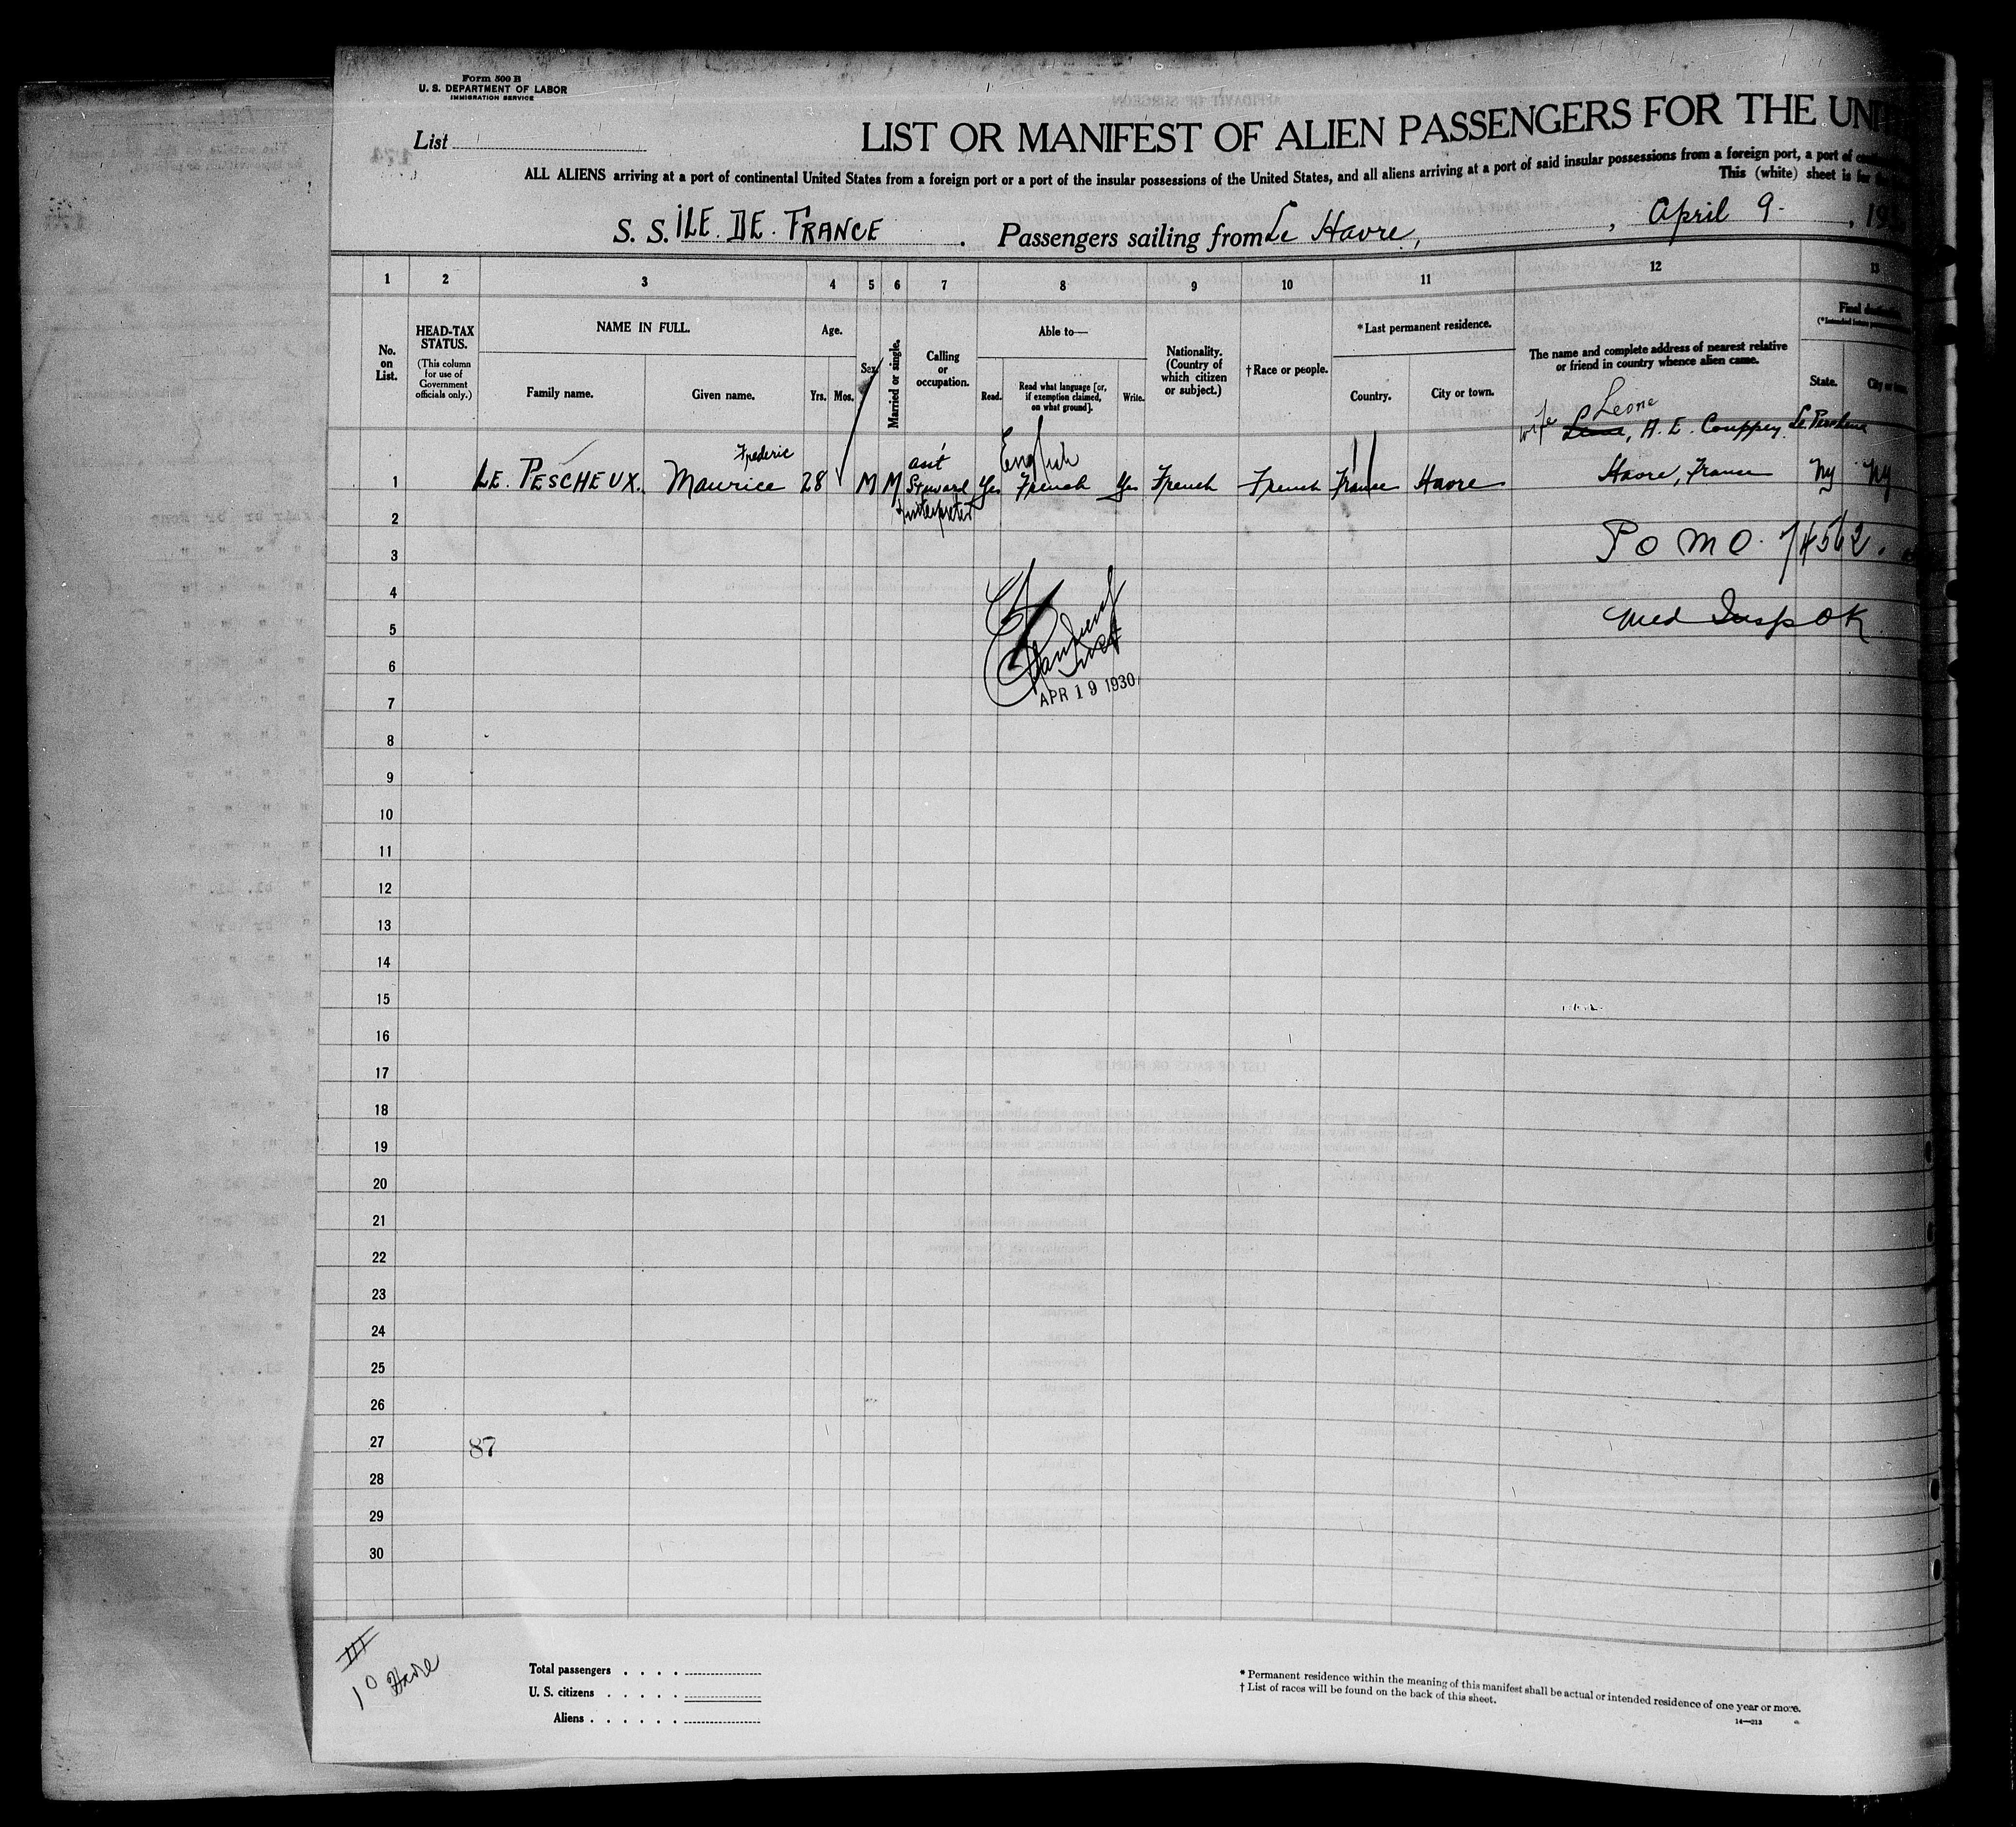 Form 500 B
U. S. DEPARTMENT OF LABOR
IMMIGRATION SERVICE
List
LIST OR MANIFEST OF ALIEN PASSENGERS FOR THE UNIT
ALL ALIENS arriving at a port of continental United States from a foreign port or a port of the insular possessions of the United States, and all aliens arriving at a port of said insular possessions from a foreign port, a port of
This (white) sheet is for
S. S. ILE. DE. FRANCE . Passengers sailing from Le Havre, , April 9- , 193
1 2 3 4 5 6 7 8 9 10 11 12 13
No. on List.
HEAD-TAX STATUS.
(This column for use of Government officials only.)
NAME IN FULL.
Family name.
Given name.
Age.
Yrs.
Mos.
Sex
Married or single.
Calling or occupation.
Able to—
Read.
Read what language [or, if exemption claimed, on what ground].
Write.
Nationality. (Country of which citizen or subject.)
† Race or people.
* Last permanent residence.
Country.
City or town.
The name and complete address of nearest relative or friend in country whence alien came.
Final destination
(*Intended future
State.
City or town
wife Leone
Leone, H. E. Couppey
Frederic asst English
1 LE. PESCHEUX. Maurice 28 M M Steward Yes French Yes French French France Havre Havre, France NY NY
Interpreter
2
3 P O M O. 74562.
4
5 Med Insp OK
6
APR 19 1930
7
8
9
10
11
12
13
14
15
16
17
18
19
20
21
22
23
24
25
26
27 87
28
29
30
III
10 Havre
Total passengers . . . .
U. S. citizens . . . . .
Aliens . . . . . .
* Permanent residence within the meaning of this manifest shall be actual or intended residence of one year or more.
† List of races will be found on the back of this sheet.
14—213